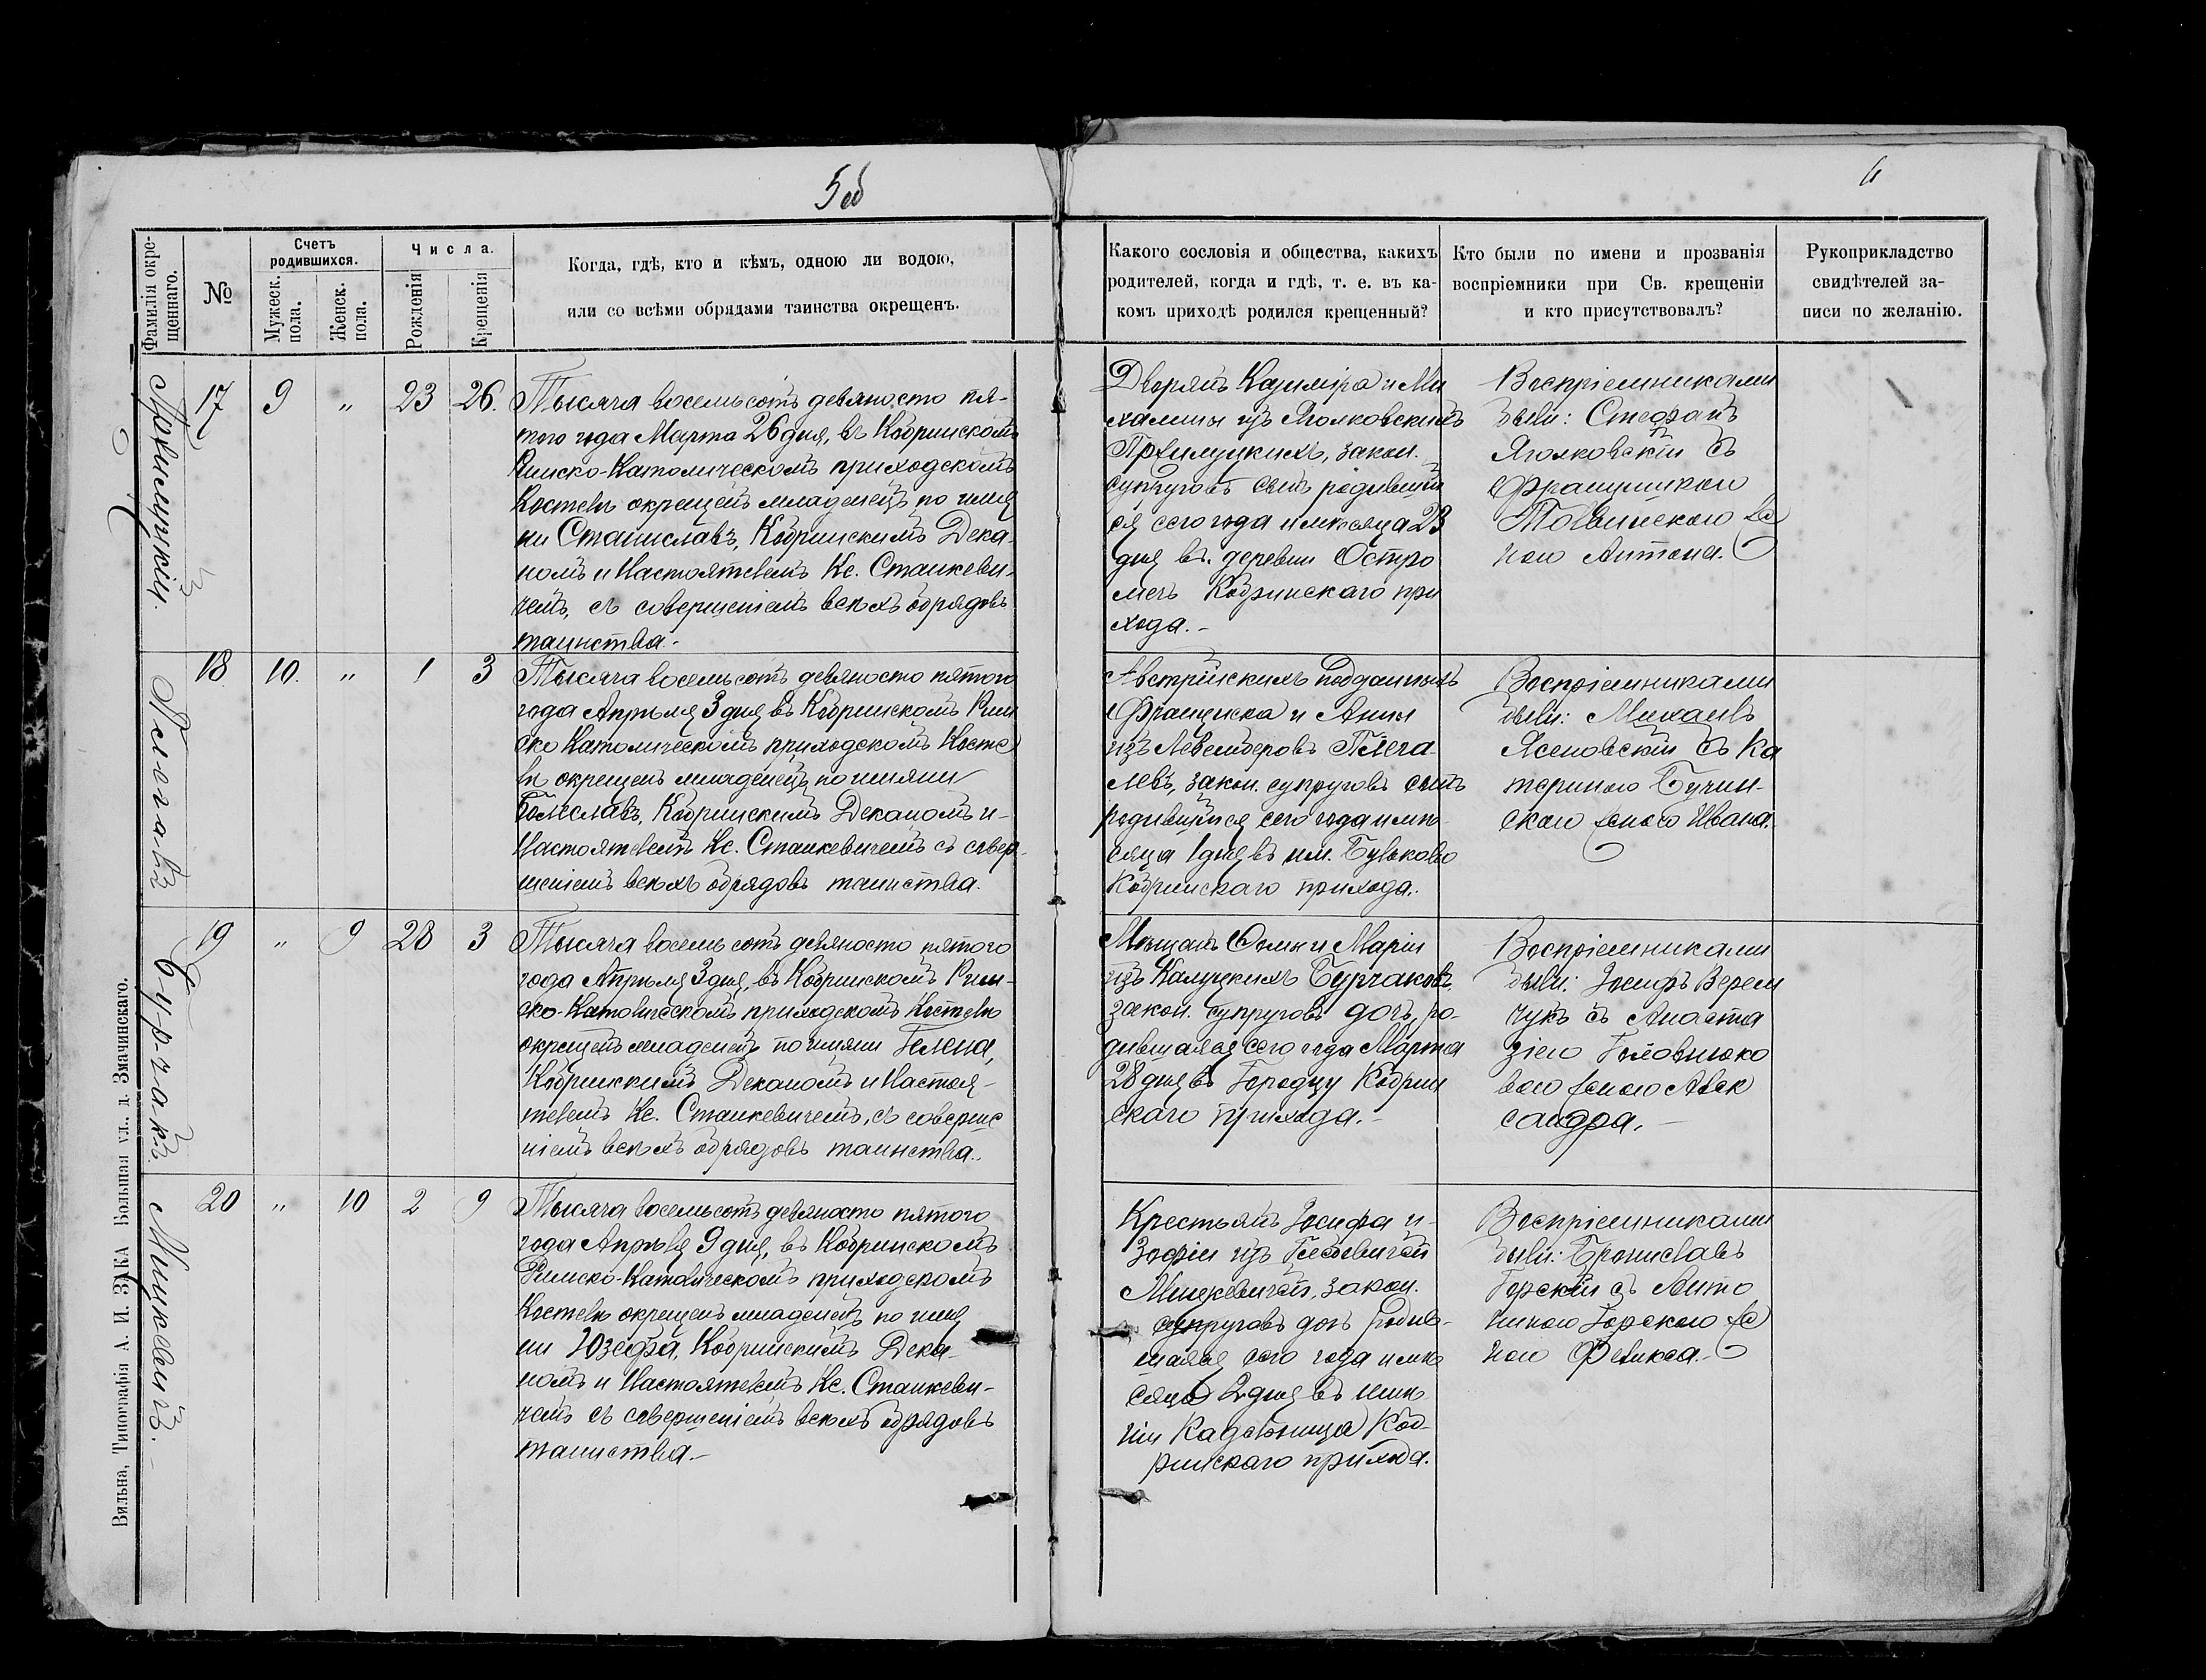 5 об
6
Фамилія окре-
щеннаго.
№
Счетъ
родившихся.
Мужеск.
пола.
Женск.
пола.
Числа.
Рожденія
Крещенія
Когда, гдѣ, кто и кѣмъ, одною ли водою,
или со всѣми обрядами таинства окрещенъ.
Какого сословія и общества, какихъ
родителей, когда и гдѣ, т. е. въ ка-
комъ приходѣ родился крещенный?
Кто были по имени и прозванія
воспріемники при Св. крещеніи
и кто присутствовалъ?
Рукоприкладство
свидѣтелей за-
писи по желанію.
17 9 " 23 26.
Тысяча восемьсотъ девяносто пя-
того года Марта 26 дня, въ Кобринскомъ
Римско-Католическомъ приходскомъ
Костелѣ окрещенъ младенецъ по име
ни Станиславъ, Кобринскимъ Дека-
номъ и Настоятелемъ Кс. Станкеви-
чемъ, съ совершеніемъ всѣхъ обрядовъ
таинства.-
Дворянъ Казиміра и Ми
халины изъ Яголковскихъ
закон.
супруговъ сынъ родившій
ся сего года и мѣсяца 23
дня въ деревни Остро
мечъ Кобринскаго при
хода.-
Воспріемниками
были: Стефанъ
Яголковскій съ
Францишкою
же
ною Антона.
Пѣлегавъ
18 10. " 1 3
Тысяча восемьсотъ девяносто пятого
года Апрѣля 3 дня въ Кобринскомъ Рим
ско Католическомъ приходскомъ Косте
лѣ окрещенъ младенецъ по имяни
Болеславъ, Кобринскимъ Деканомъ и-
Настоятелемъ Кс. Станкевичемъ съ совер-
шеніемъ всѣхъ обрядовъ таинства.
Австрійскихъ подданныхъ
Франциска и Анны
изъ
закон. супруговъ сынъ
родившійся сего года и мѣ-
сяца 1 дня въ им. Бульково
Кобринскаго прихода.
Воспріемниками
были: Михаилъ
Ясеновскій съ Ка
териною Бучин-
скою женою Ивана.
Бурчакъ.
19 " 9 28 3
Тысяча восемь сотъ девяносто пятого
года Апрѣля 3 дня, въ Кобринскомъ Рим-
ско-Католическомъ приходскомъ Костелѣ
окрещенъ младенецъ по имяни Гелена,
Кобринскимъ Деканомъ и Настоя-
телемъ Кс. Станкевичемъ, съ соверше
ніемъ всѣхъ обрядовъ таинства.
Мѣщанъ Ѳомы и Маріи
изъ Калуцкихъ Бурчаковъ
закон. супруговъ дочь, ро-
дившаяся сего года Марта
28 дня въ Городцу Кобрин
скаго прихода.-
Воспріемниками
были: Іосифъ Верем
чукъ съ Анаста
зіею Головнюко
вою женою Алек
сандра.
Мицкевичъ.-
20 " 10 2 9
Тысяча восемьсотъ девяносто пятого
года Апрѣля 9 дня, въ Кобринскомъ
Римско-Католическомъ приходскомъ
Костелѣ окрещенъ младенецъ по име
ни Юзефа, Кобринскимъ Дека-
номъ и Настоятелемъ Кс. Станкеви-
чемъ съ совершеніемъ всѣхъ обрядовъ
таинства.-
Крестьянъ Іосифа и-
Зофіи изъ
Мицкевичей, закон.
супруговъ дочь родив-
шаяся сего года и мѣ
сяца 2 дня въ имѣ
ніи Коб-
ринскаго прихода.
Воспріемниками
были: Брониславъ
Горскій съ Анто
ниною Горскою же
ною Феликса.-
Вильна, Типографія А. И. ЗАКА Большая ул., д. Змачинскаго.